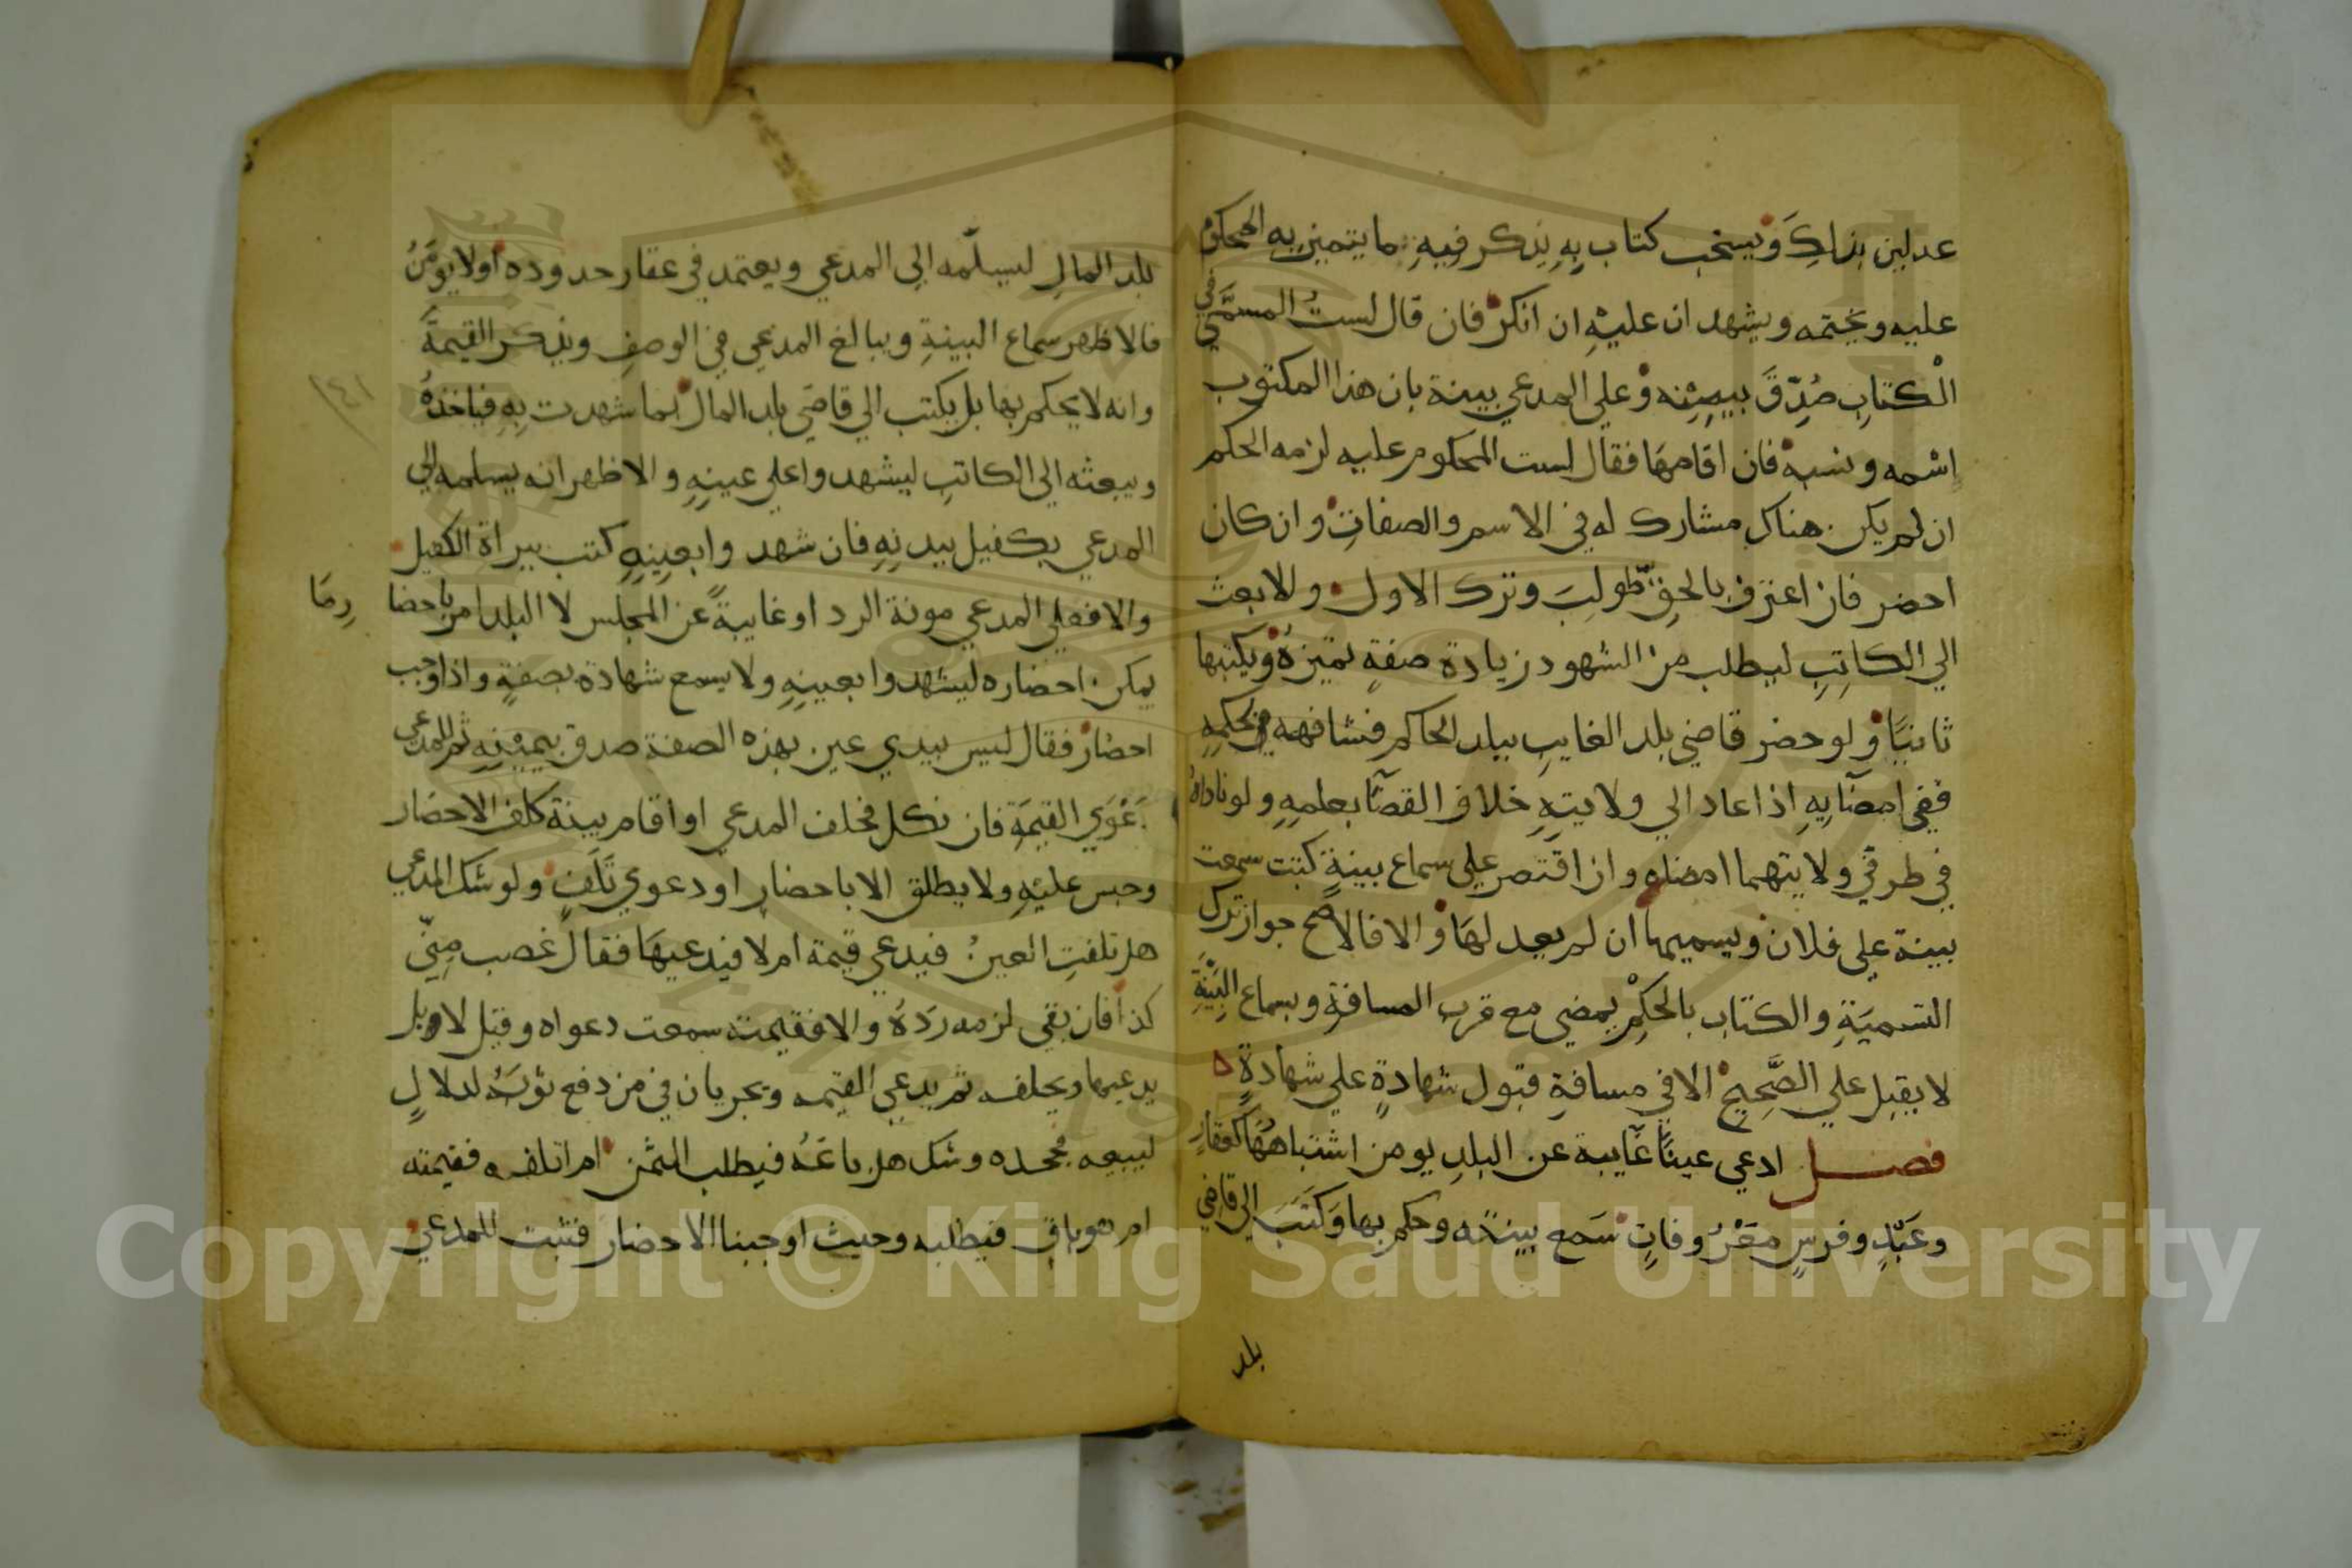 عدلين بذلِكَ ويستحب كتاب بِهِ يذكر فيهِ ما يتميز به المحكوم
عليه ويختمه ويشهد ان عليهِ ان انكر فان قال لستُ المسمَّي في
الْكتابِ صُدِّقَ بيمِنِه وعلي المدعي بينة بان هذا المكتوب
اسمه ونسبه فان اقامهَا فقال لست المحكوم عليه لزمه الحكم
ان لم يكن هناك مشارك له في الاسم والصفاتِ وان كان
احضر فان اعترف بالحقِ طولِبَ وترك الاول والا بعث
الي الكاتِبِ ليطلب من الشهود زيادة صفةٍ تميزهُ ويكتبها
ثانيًا ولو حضر قاضي بلد الغايبِ ببلد الحاكم فشافهه بحكمِهِ
ففي امضَآيِهِ اذا عاد الي ولايتِهِ خلاف القضَآ بعلمِهِ ولو ناداهُ
في طرفي ولايتهما امضاه وان اقتَصر علي سماع بينةٍ كتبت سمعت
بينة علي فلان ويسميها ان لم يعدلهَا والا فالاصح جواز ترك
التسميَةِ والكتاب بالحكِم يمضي مع قرب المسافةِ وبسماع البَيِّنَةِ
لا يقبل علي الصَّحِيحِ الا في مسافةِ قبول شهادةٍ علي شهادةٍ ه
فصل ادعي عينًا غَآيبة عن البلدِ يومن اشتباههَا كعقارٍ
وعَبْدٍ وفرسٍ معْرُوفاتٍ سَمع بينته وحكم بها وَكتَبَ الي قاضي
بلد
بلد المالِ ليسلّمه الي المدعي ويعتمد في عقار حدوده أولا يومَنُ
فالاظهر سماع البينةِ ويبالغ المدعي في الوصفِ ويذكر القيمةَ
١٤١
وانه لا يحكم بها بل يكتب الي قاضي بلد المال بما شهدت بِهِ فياخذهُ
ويبعثه الي الكاتبِ ليشهدوا علي عينِهِ والاظهر انه يسلمه الي
المدعي بكفيل ببدنِهِ فان شهدوا بعينِهِ كتب ببراة الكفيل
والا فعلي المدعي مونة الرد او غايبةً عن المجلس لا البلد امر باحضا
رِمَا
يمكن احضاره ليشهدوا بعينِهِ ولا يسمع شهادة بصفةٍ واذا وجب
احضار فقال ليس بيدي عين بهذه الصفة صدق بيمينِهِ ثم للمدعي
دَعْوَي القيمَةِ فان نكل فحلف المدعي او اقام بينة كلف الاحضار
وحبس عليهِ ولا يطلق الا باحضارٍ او دعوي تَلَفٍ ولو شك المدعي
هل تلفتِ العينُ فيدعي قيمة ام لا فيدعيهَا فقال غصب مِنِّي
كذا فان بقي لزمه ردهُ والا فقيمته سمعت دعواه وقيل لا وبل
يدعيها ويحلفه ثم يدعي القيمه ويجريان في من دفع ثوبَهُ لدلالٍ
ليبيعه فجحده وشك هل باعَهُ فيطلب الثمن ام اتلفه فقيمته
ام هو باقٍ فيطلبه وحيث اوجبنا الاحضار فثبت للمدعي
Copyright © King Saud University